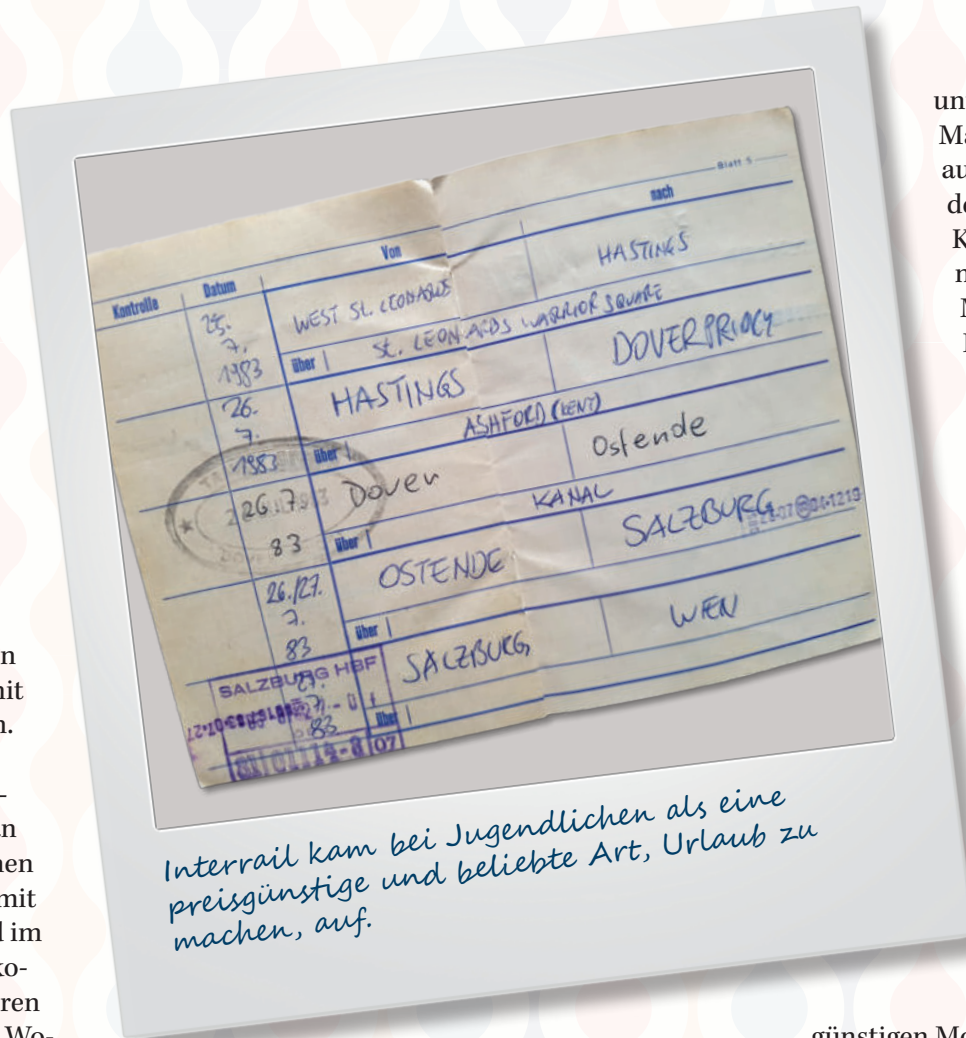 Blatt 5
Kontrolle Datum Von nach
25. 7. 1983 WEST ST. LEONARDS HASTINGS
über ST. LEONARDS WARRIOR SQUARE
26. 7. 1983 HASTINGS DOVER PRIORY
über ASHFORD (KENT)
26.7 83 Dover Ostende
über KANAL
26./27. 7. 83 OSTENDE SALZBURG
über
27. 7. 83 SALZBURG WIEN
über
SALZBURG HBF
07
Interrail kam bei Jugendlichen als eine
preisgünstige und beliebte Art, Urlaub zu
machen, auf.
günstigen